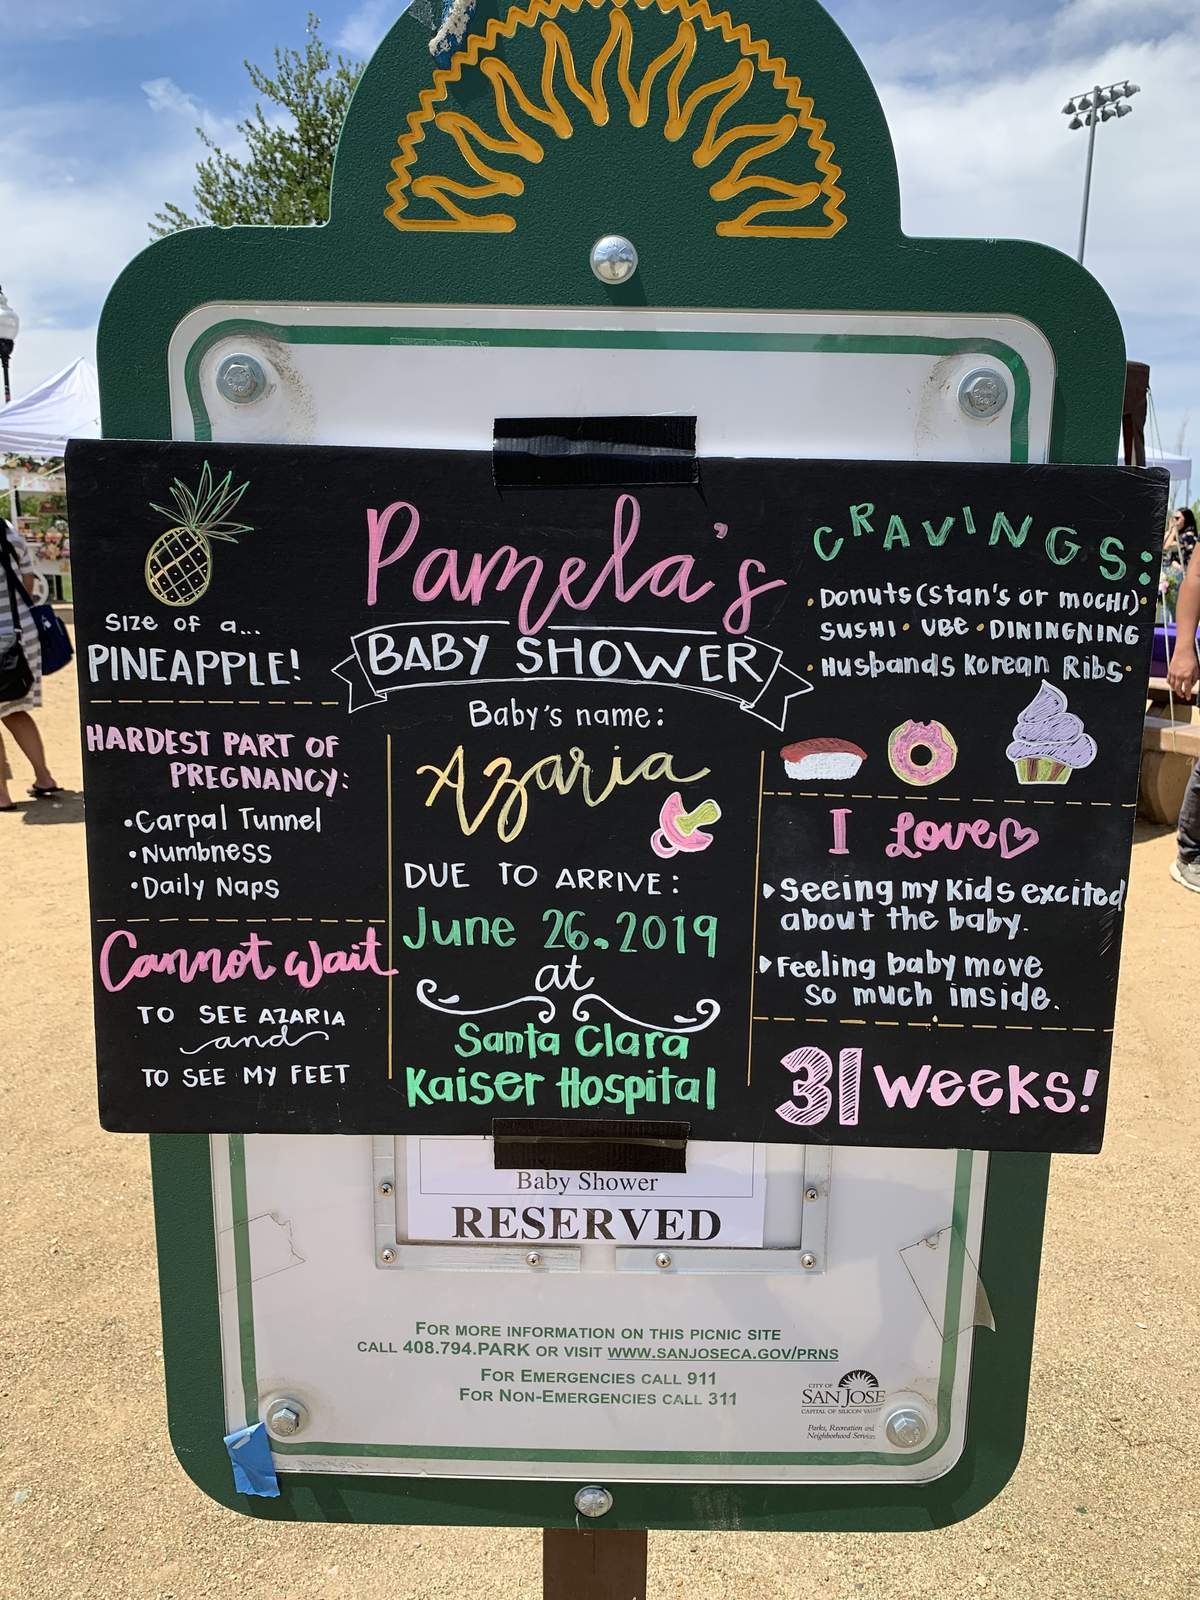 Pamela's
BABY SHOWER
Baby's name:
Azaria
DUE TO ARRIVE:
June 26.2019
at
Santa Clara
Kaiser Hospital
SIZE OF a...
PINEAPPLE!
HARDEST PART OF
PREGNANCY:
•Carpal Tunnel
•Numbness
•Daily Naps
Cannot wait
TO SEE AZARIA
and
TO SEE MY FEET
CRAVINGS:
•Donuts (Stan's or mochi)•
SUSHI • UBE • DININGNING
•Husbands Korean Ribs•
I Love
Seeing my kids excited
about the baby.
Feeling baby move
so much inside.
31 weeks!
Baby Shower
RESERVED
FOR MORE INFORMATION ON THIS PICNIC SITE
CALL 408.794.PARK OR VISIT WWW.SANJOSECA.GOV/PRNS
FOR EMERGENCIES CALL 911
FOR NON-EMERGENCIES CALL 311
CITY OF
SAN JOSE
CAPITAL OF SILICON VALLEY
Parks, Recreation and
Neighborhood Services